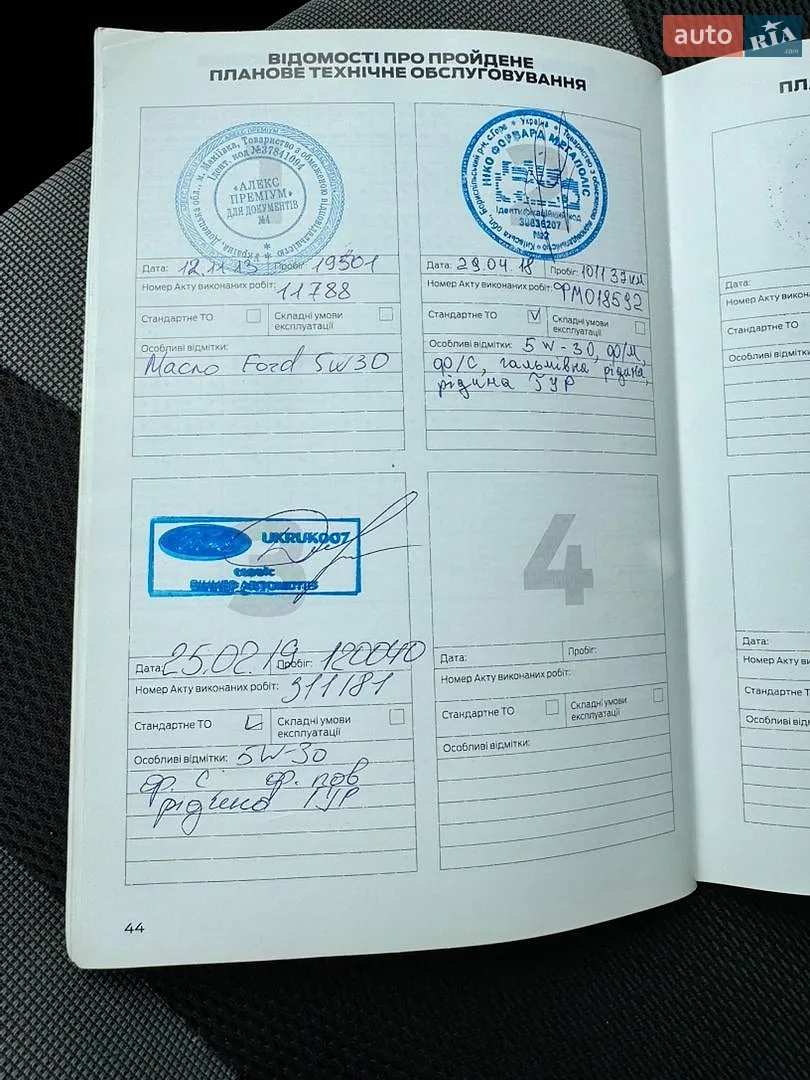 auto RIA.com
ВІДОМОСТІ ПРО ПРОЙДЕНЕ
ПЛАНОВЕ ТЕХНІЧНЕ ОБСЛУГОВУВАННЯ
Україна Донецька обл., м. Макіївка, Товариство з обмеженою відповідальністю
АЛЕКС ПРЕМІУМ
Ідент. код №37841094
«АЛЕКС
ПРЕМІУМ»
ДЛЯ ДОКУМЕНТІВ
№4
Дата: 12.11.13 Пробіг: 19501
Номер Акту виконаних робіт: 11788
Стандартне ТО
Складні умови
експлуатації
Особливі відмітки:
Масло Ford 5W30
Україна * Товариство з обмеженою відповідальністю * Київська обл., Бориспільський р-н, с.Гора
НІКО ФОРВАРД МЕГАПОЛІС
Ідентифікаційний код
№2
Дата: 29.04.18 Пробіг: 101137км
Номер Акту виконаних робіт: ФМ018592
Стандартне ТО V
Складні умови
експлуатації
Особливі відмітки: 5W-30, ф/м,
ф/с, гальмівна рідина,
рідина ГУР
UKRUK007
сервіс
Дата: 25.02.19 Пробіг: 120040
Номер Акту виконаних робіт: 311181
Стандартне ТО
Складні умови
експлуатації
Особливі відмітки: 5W-30
ф. с ф. пов
рідина ГУР
4
Дата: Пробіг:
Номер Акту виконаних робіт:
Стандартне ТО
Складні умови
експлуатації
Особливі відмітки:
44
ПЛ
Дата:
Номер Акту викона
Стандартне ТО
Особливі відмі
Дата:
Номер Акту ви
Стандартне Т
Особливі від